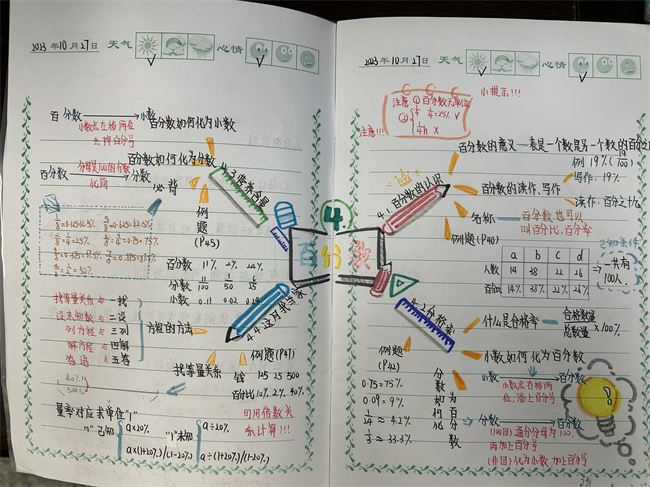 2023年10月27日 天气 心情
百分数 → 小数
小数点左移两位
去掉百分号
百分数如何化为小数
百分数如何化为分数
百分数 → 分数
化简
必背
4.3营养含量
例题
(P45)
百分数 11% 2% 24%
分数
小数 0.11 0.02
4.4这月我当家
找等量关系 ← 一找
设未知数 ← 二设
列方程 ← 三列
解方程 ← 四解
答语 ← 五答
方程的方法
找等量关系
例题(P47)
钱 125 25 500
百分比 10% 2% 40%
量率对应求单位"1"
"1"已知
a×20%
a×(1+20%)/(1-20%)
"1"未知
a÷20%
a÷(1+20%)/(1-20%)
可用倍数关
系计算!!!
4
百分数
2023年10月27日 天气 心情
小提示!!!
注意!!!
注意: ① 百分数无单位
② 1/4=25% √
4.1百分数的认识
百分数的意义
例 19%(19/100)
百分数的读作,写作
写作: 19%
读作: 百分之十九
名称
百分数也可以
叫百分比,百分率
例题(P40)
a b c d
人数 14 38 22 26
百分比 14% 38% 22% 26%
已知条件
一共有
100人
4.2合格率
什么是合格率
合格数量/总数量×100%
小数如何化为百分数
小数 → 百分数
小数点右移两
位,添上百分号
例题
(P42)
0.75=75%
0.09=9%
1/24≈4.2%
1/3≈33.3%
分数如何化为百分数
分数 → 百分数
(100因)通分分母为100,
再加上百分号
(非因)化为小数加上百分号